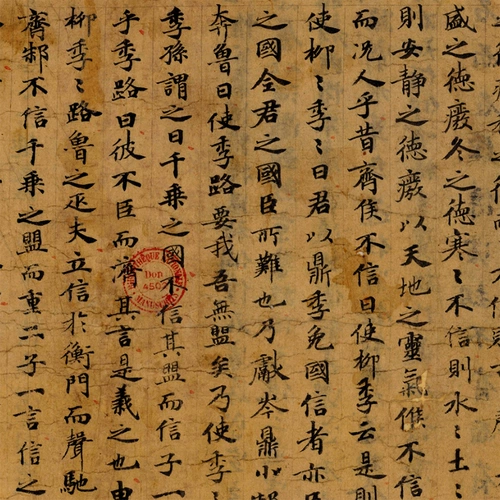 盛之德廢冬之德寒〻不信則水〻土〻
則安靜之德廢以天地之靈氣候不信
而况人乎昔齊侯不信曰使柳季云是則
使柳〻季〻曰君以鼎季免國信者亦
之國全君之國臣所難也乃獻岑鼎小邾
奔魯曰使季路要我吾無盟矣乃使季〻
季孫謂之曰千乘之國不信其盟而信子一
乎季路曰彼不臣而濟其言是義之也由
柳季〻路魯之匹夫立信於衡門而聲馳
齊邾不信千乘之盟而重二子一言信之
Don
4502
MANUSCRITS